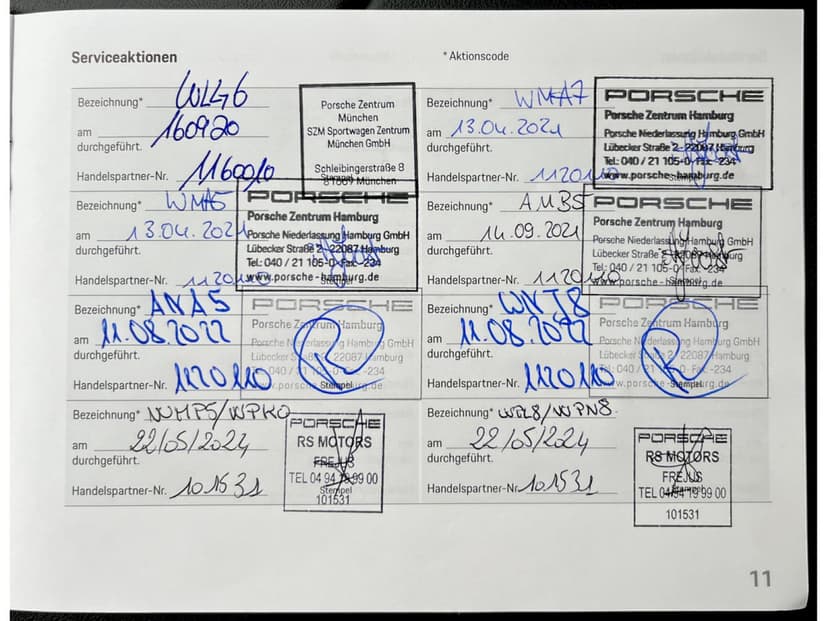 Serviceaktionen
* Aktionscode
Bezeichnung* WLG6
am 160920
durchgeführt.
Handelspartner-Nr. 1160010
Porsche Zentrum
München
SZM Sportwagen Zentrum
München GmbH
Schleibingerstraße 8
81669 München
Stempel
Bezeichnung* WMA7
am 13.04.2021
durchgeführt.
Handelspartner-Nr. 1120110
PORSCHE
Porsche Zentrum Hamburg
Porsche Niederlassung Hamburg GmbH
Lübecker Straße 2 - 22087 Hamburg
Tel.: 040 / 21 105-0 Fax -234
www.porsche-hamburg.de
Stempel
Bezeichnung* WMA5
am 13.04.2021
durchgeführt.
Handelspartner-Nr. 1120110
PORSCHE
Porsche Zentrum Hamburg
Porsche Niederlassung Hamburg GmbH
Lübecker Straße 2 - 22087 Hamburg
Tel.: 040 / 21 105-0 Fax -234
www.porsche-hamburg.de
Stempel
Bezeichnung* AMB5
am 14.09.2021
durchgeführt.
Handelspartner-Nr. 1120110
PORSCHE
Porsche Zentrum Hamburg
Porsche Niederlassung Hamburg GmbH
Lübecker Straße 2 - 22087 Hamburg
Tel.: 040 / 21 105-0 Fax -234
www.porsche-hamburg.de
Stempel
Bezeichnung* ANA5
am 11.08.2022
durchgeführt.
Handelspartner-Nr. 1120110
PORSCHE
Porsche Zentrum Hamburg
Porsche Niederlassung Hamburg GmbH
Lübecker Straße 2 - 22087 Hamburg
Tel.: 040 / 21 105-0 Fax -234
www.porsche-hamburg.de
Stempel
Bezeichnung* WNJ8
am 11.08.2022
durchgeführt.
Handelspartner-Nr. 1120110
PORSCHE
Porsche Zentrum Hamburg
Porsche Niederlassung Hamburg GmbH
Lübecker Straße 2 - 22087 Hamburg
Tel.: 040 / 21 105-0 Fax -234
www.porsche-hamburg.de
Stempel
Bezeichnung* NUMP5/WPK0
am 22/05/2024
durchgeführt.
Handelspartner-Nr. 101531
PORSCHE
RS MOTORS
FREJUS
TEL 04 94 19 99 00
Stempel
101531
Bezeichnung* /WPN8
am 22/05/2024
durchgeführt.
Handelspartner-Nr. 101531
PORSCHE
RS MOTORS
FREJUS
TEL 04 94 19 99 00
Stempel
101531
11